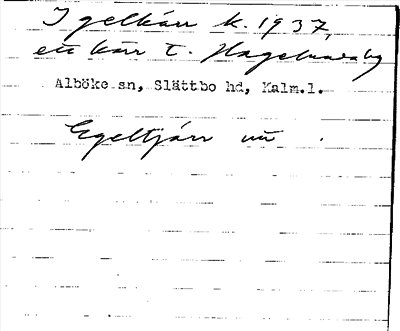 Igelkärr k. 1937,
ett kärr t. Hagelstadaby
Alböke sn, Slättbo hd, Kalm.l.
Egeltjärr nu .